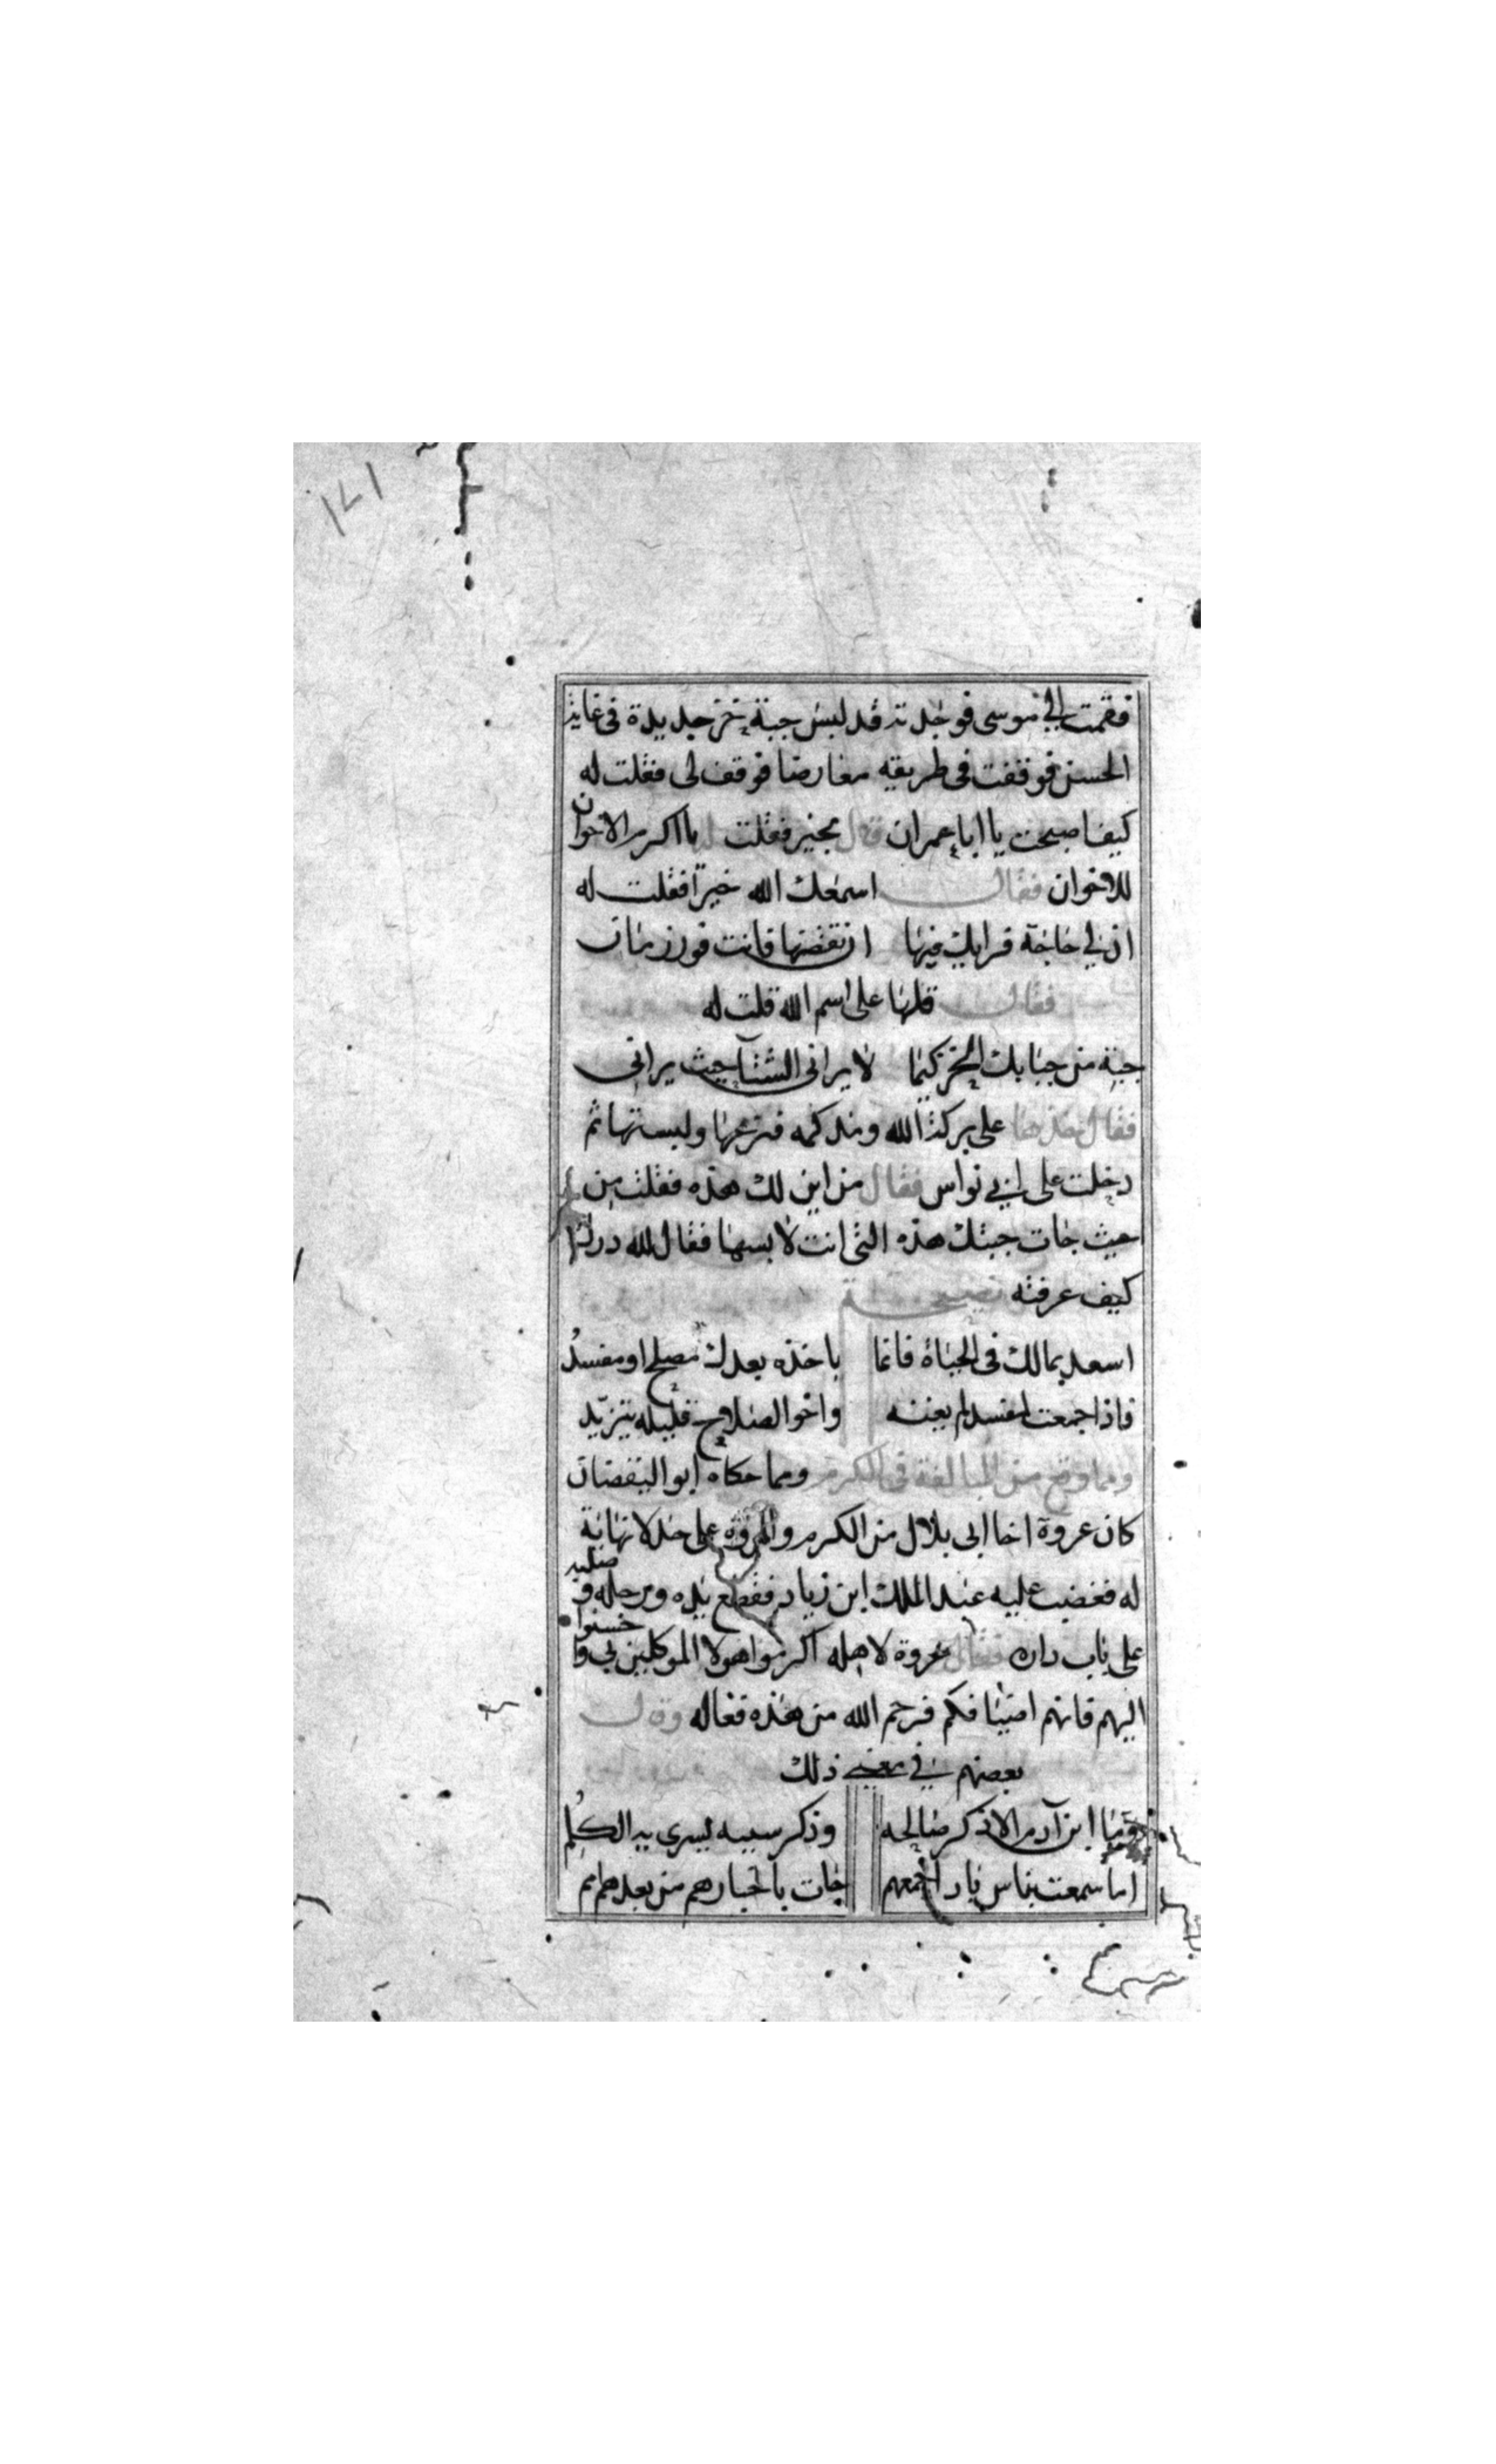 ١٧١
فقمت الي موسى فوجدته قد لبس جبة خز جديدة فى غاية
الحسن فوقفت فى طريقه معارضا فوقف لى فقلت له
كيف اصبحت يا ابا عمران قال بخير فقلت يا اكرم الاخوان
للاخوان فقال اسمعك الله خيرا فقلت له
ان لي حاجة فرايك فيها ان تقضها فانت فوزي
فقال قلها على اسم الله قلت له
جبة من جبابك الخز كيما لا يرانى الشتا حيث يرانى
فقال خذها على بركة الله ومد كمه فنزعها ولبستها ثم
دخلت على ابي نواس فقال من اين لك هذه فقلت من
حيث جات جبتك هذه التى انت لابسها فقال لله درك
كيف عرفته نصيحة
اسعد بمالك فى الحياة فانما ياخذه بعدك مصلح او مفسد
فاذا جمعت لمفسد لم يغنه واخوا الصلاح قليله يتزيد
ومما وقع من المبالغة فى الكرم ومما حكاه ابو اليقضان
كان عروة اخا ابى بلال من الكرم والمروة على حد لا نهاية
له فغضب عليه عبد الملك ابن زياد فقطع يده ورجله وصلبه
على باب داره فقال عروة لاهله اكرموا هولا الموكلين بي واحسنوا
اليهم فانهم اضيافكم فرحم الله من هذه فعاله وقال
بعضهم في ذلك
وما ابن آدم الا ذكر صالحه وذكر سيئه يسرى به الكلم
اما سمعت بناس باد اجمعهم جات باخبارهم من بعدهم امم